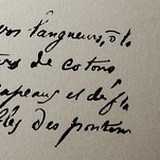 vos langueurs, ô la
urs de cotons
apeaux et des fla
bles des pontons